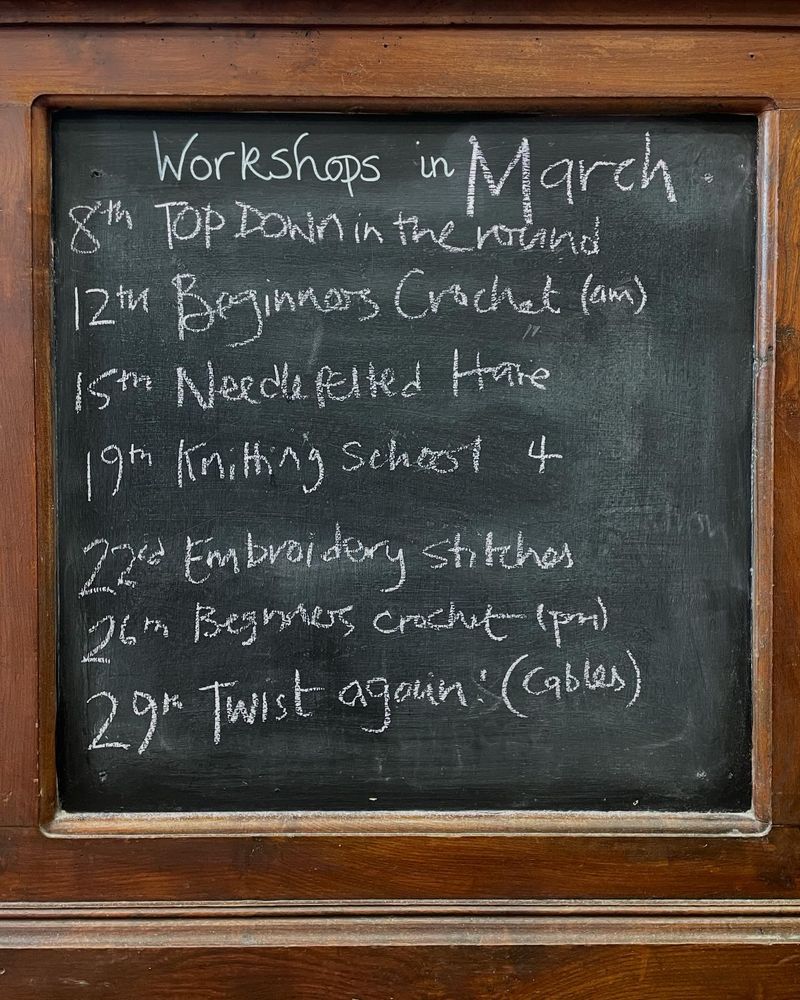 Workshops in March
8th TOP DOWN in the round
12th Beginners Crochet (am)
15th Needlefelted Hare
19th Knitting School 4
22rd Embroidery stitches
26th Beginners crochet (pm)
29th Twist again! (Cables)